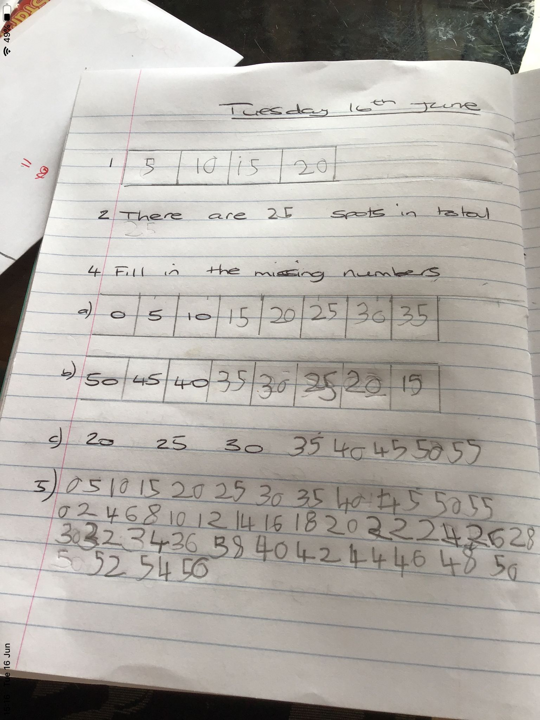 Tuesday 16th June
1 5 10 15 20
2 There are 25 spots in total
25
4 Fill in the missing numbers
a) 0 5 10 15 20 25 30 35
b) 50 45 40 35 30 25 20 15
c) 20 25 30 35 40 45 50 55
5) 0 5 10 15 20 25 30 35 40 45 50 55
0 2 4 6 8 10 12 14 16 18 20 22 24 26 28
30 32 34 36 38 40 42 44 46 48 50
50 52 54 56
16 Jun
49